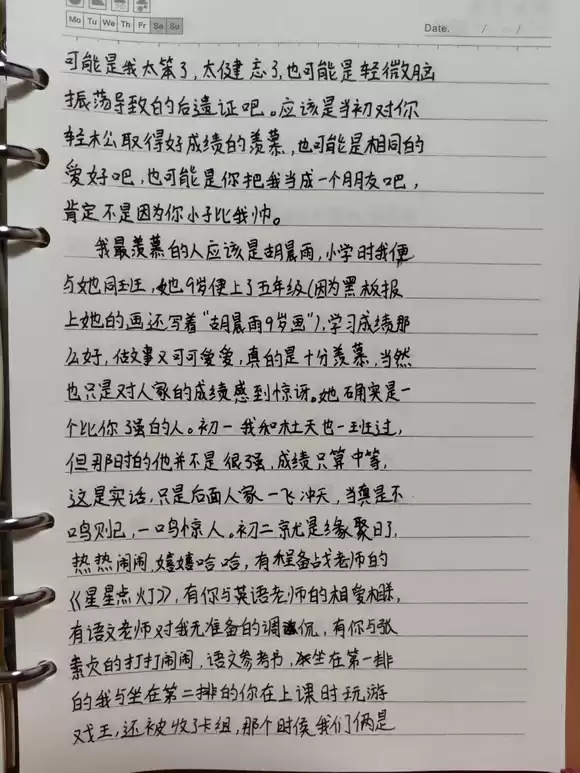 Mo Tu We Th Fr Sa Su
Date. / /
可能是我太笨了,太健忘了,也可能是轻微脑
振荡导致的后遗证吧。应该是当初对你
轻松取得好成绩的羡慕,也可能是相同的
爱好吧,也可能是你把我当成一个朋友吧,
肯定不是因为你小子比我帅。
我最羡慕的人应该是胡晨雨,小学时我便
与她同班,她9岁便上了五年级(因为黑板报
上她的画还写着“胡晨雨9岁画”),学习成绩那
么好,做事又可可爱爱,真的是十分羡慕,当然
也只是对人家的成绩感到惊讶。她确实是一
个比你了强的人。初一我和杜天也一班过,
但那时的他并不是很强,成绩只算中等,
这是实话,只是后面人家一飞冲天,当真是不
鸣则已,一鸣惊人。初二就是缘聚日了,
热热闹闹,嬉嬉哈哈,有程备战老师的
《星星点灯》,有你与英语老师的相爱相,
有语文老师对我无准备的调侃,有你与张
素贞的打打闹闹,语文参考书,坐在第一排
的我与坐在第二排的你在上课时玩游
戏王,还被收了卡组,那个时候我们俩是